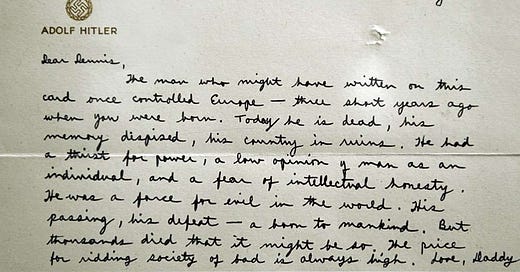 ADOLF HITLER
Dear Dennis,
The man who might have written on this
card once controlled Europe — three short years ago
when you were born. Today he is dead, his
memory despised, his country in ruins. He had
a thirst for power, a low opinion of man as an
individual, and a fear of intellectual honesty.
He was a force for evil in the world. His
passing, his defeat — a boon to mankind. But
thousands died that it might be so. The price
for ridding society of bad is always high. Love, Daddy